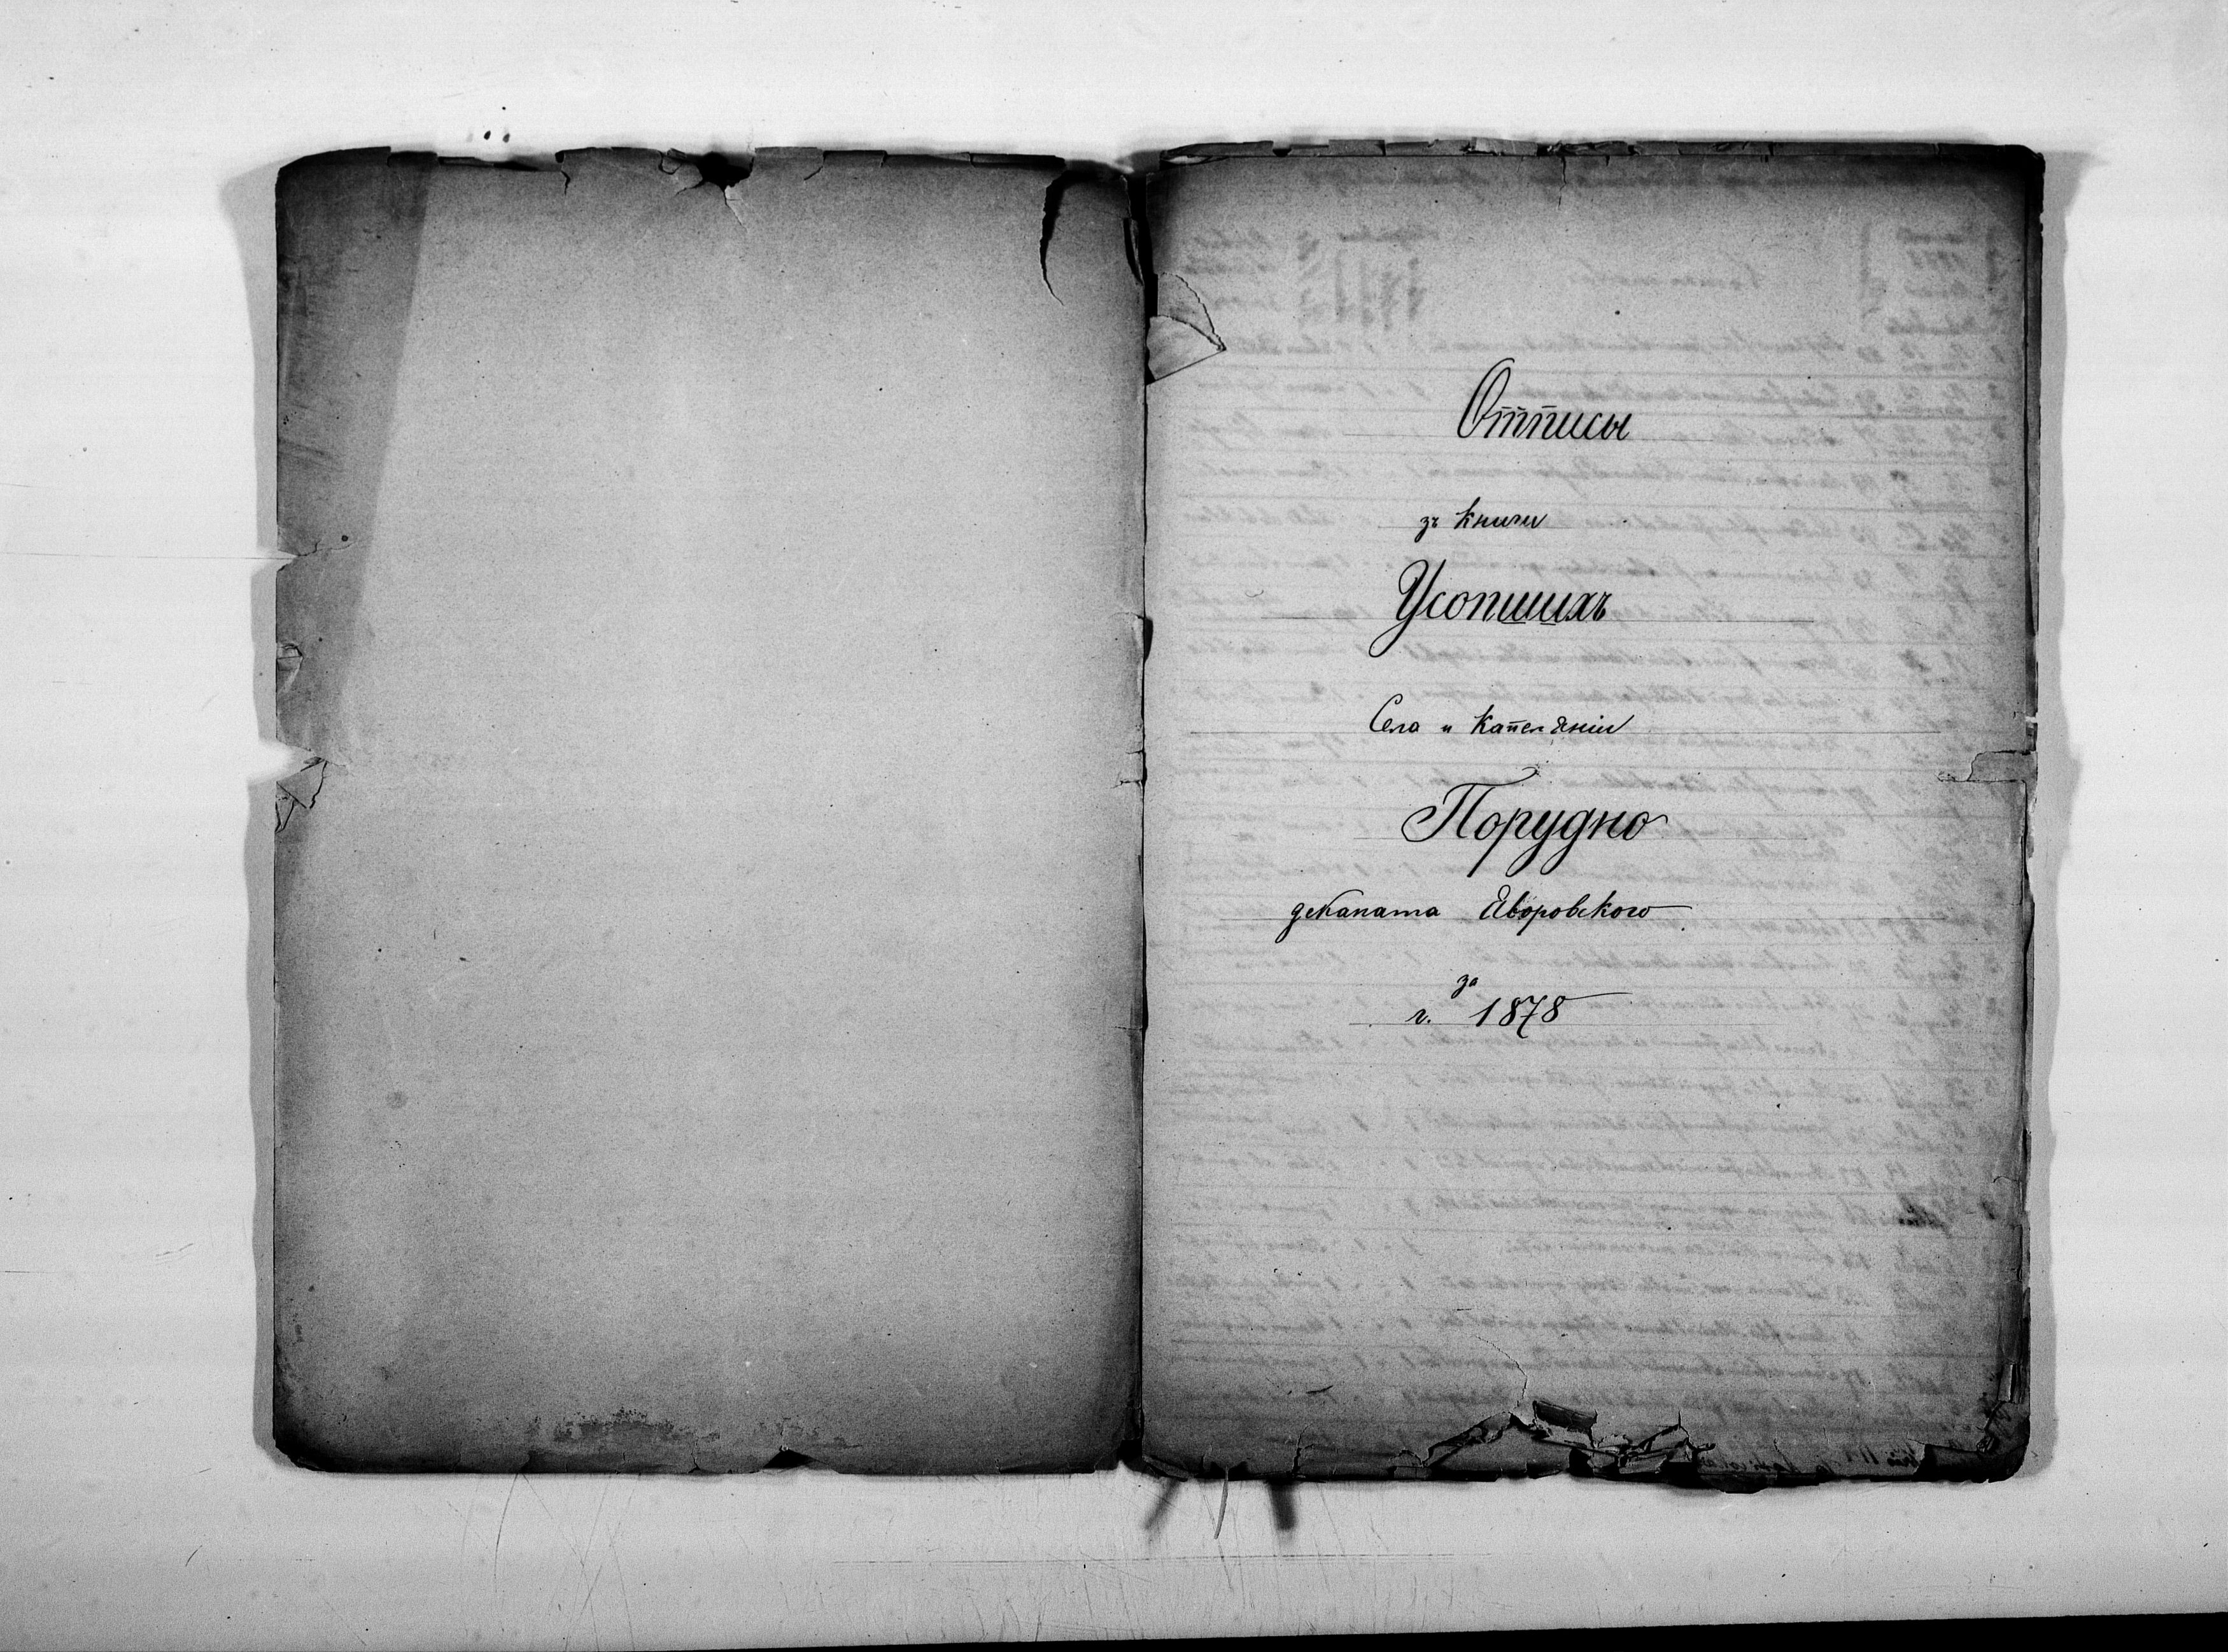 Отписы
зъ книги
Усопшихъ
Села и Капеляніи
Порудно
деканата Яворовского
за
г. 1878